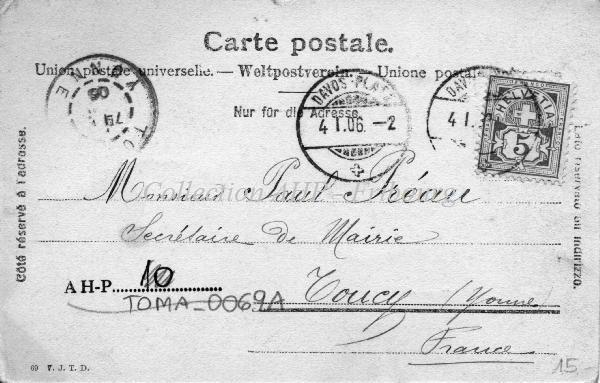 Carte postale.
Union postale universelle. — Weltpostverein. — Unione postale
Nur für die Adresse.
DAVOS-PLATZ
4 I.06. – 2
DAV
4 I.
HELVETIA
5
TOUCY
YONNE
06
Côté réservé à l'adresse.
Lato riservato all indirizzo.
Collection AHP
Monsieur Paul Préau
Secrétaire de Mairie
Toucy (Yonne)
France
AH-P 10
TOMA_0069A
69 V. J. T. D.
15-